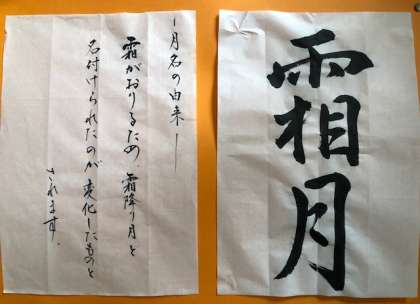 霜月
―月名の由来―
霜がおりるため、霜降り月と
名付けられたのが変化したものと
されます。